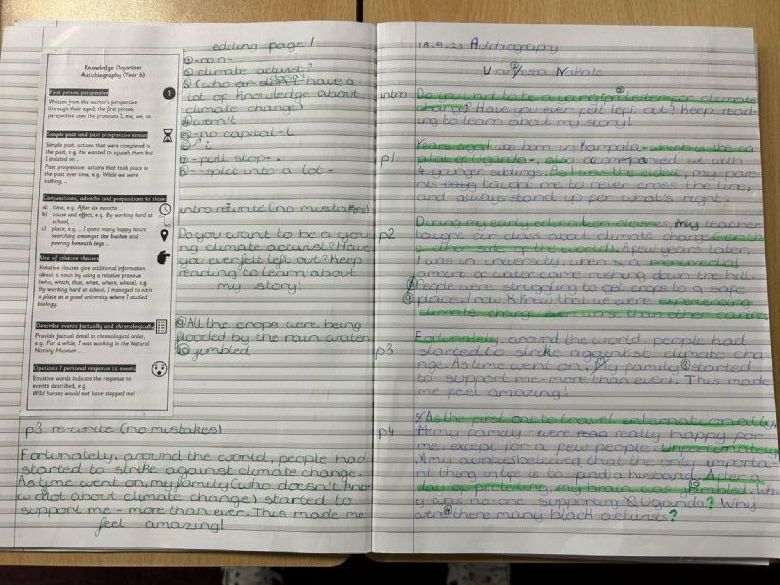 Knowledge Organiser
Autobiography (Year 6)
First person perspective
1
Written from the author's perspective
(through their eyes), the first person
perspective uses the pronouns I, me, we, us.
Simple past and past progressive tenses
Simple past: actions that were completed in
the past, e.g. He wanted to squash them but
I insisted on...
Past progressive: actions that took place in
the past over time, e.g. While we were
talking...
Conjunctions, adverbs and prepositions to show:
a) time, e.g. After six months
b) cause and effect, e.g. By working hard at
school,
c) place, e.g. ... I spent many happy hours
searching amongst the bushes and
peering beneath logs...
Use of relative clauses
Relative clauses give additional information
about a noun by using a relative pronoun
(who, which, that, when, where, whose), e.g.
By working hard at school, I managed to earn
a place at a good university where I studied
biology.
Describe events factually and chronologically
Provide factual detail in chronological order,
e.g. For a while, I was working in the Natural
History Museum...
Opinions / personal response to events
Emotive words indicate the response to
events described, e.g.
Wild horses would not have stopped me!
editing page!
climate activist?
have a
lot of knowledge about
climate change)
won't
no capital - t
- i
- full stop - .
- split into a lot -
intro rewrite (no mistakes)
Do you want to be a you
ng climate activist? Have
you ever felt left out? Keep
reading to learn about
my story!
All the crops were being
flooded by the rain water
jumbled
p3 re-write (no mistakes)
Fortunately, around the world, people had
started to strike against climate change.
As time went on, my family (who doesn't kno
w a lot about climate change) started to
support me - more than ever. This made me
feel amazing!
18.9.23 Autobiography
Vanessa Nakate
intro
Do you want to be a young for climate
change? Have you ever felt left out? Keep read-
ing to learn about my story!
p1
Years ago, I was born in Kampala - which is the ca
pital of Uganda - accompanied with
4 younger siblings. As I was the eldest, my pare
nts taught me to never cross the line,
and always stand up for what's right.
p2
During my early education classes, my teacher
taught our class about climate change
other side of the world. A few years later,
I was in university, when
amount of water came rushing down the hill.
People were struggling to get crops to a safe
place. I now knew that we were experiencing
climate change even more than other
p3
Fortunately, around the world, people had
started to strike against climate cha
nge. As time went on, my family started
to support me - more than ever. This made
me feel amazing!
p4
As the first one to travel internationally,
Many family were really happy for
me except for a few people. Unfortunately
that the only importa
nt thing in life is to find a husband. After a
day of protesting, my brain was jumbled. Wh
y was no-one supporting Uganda? Why
weren't there many black activists?